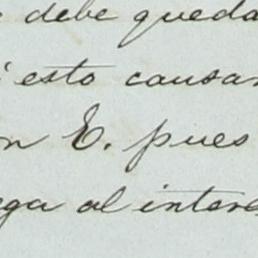 debe queda
esto causa
n E. pues
ega al interes